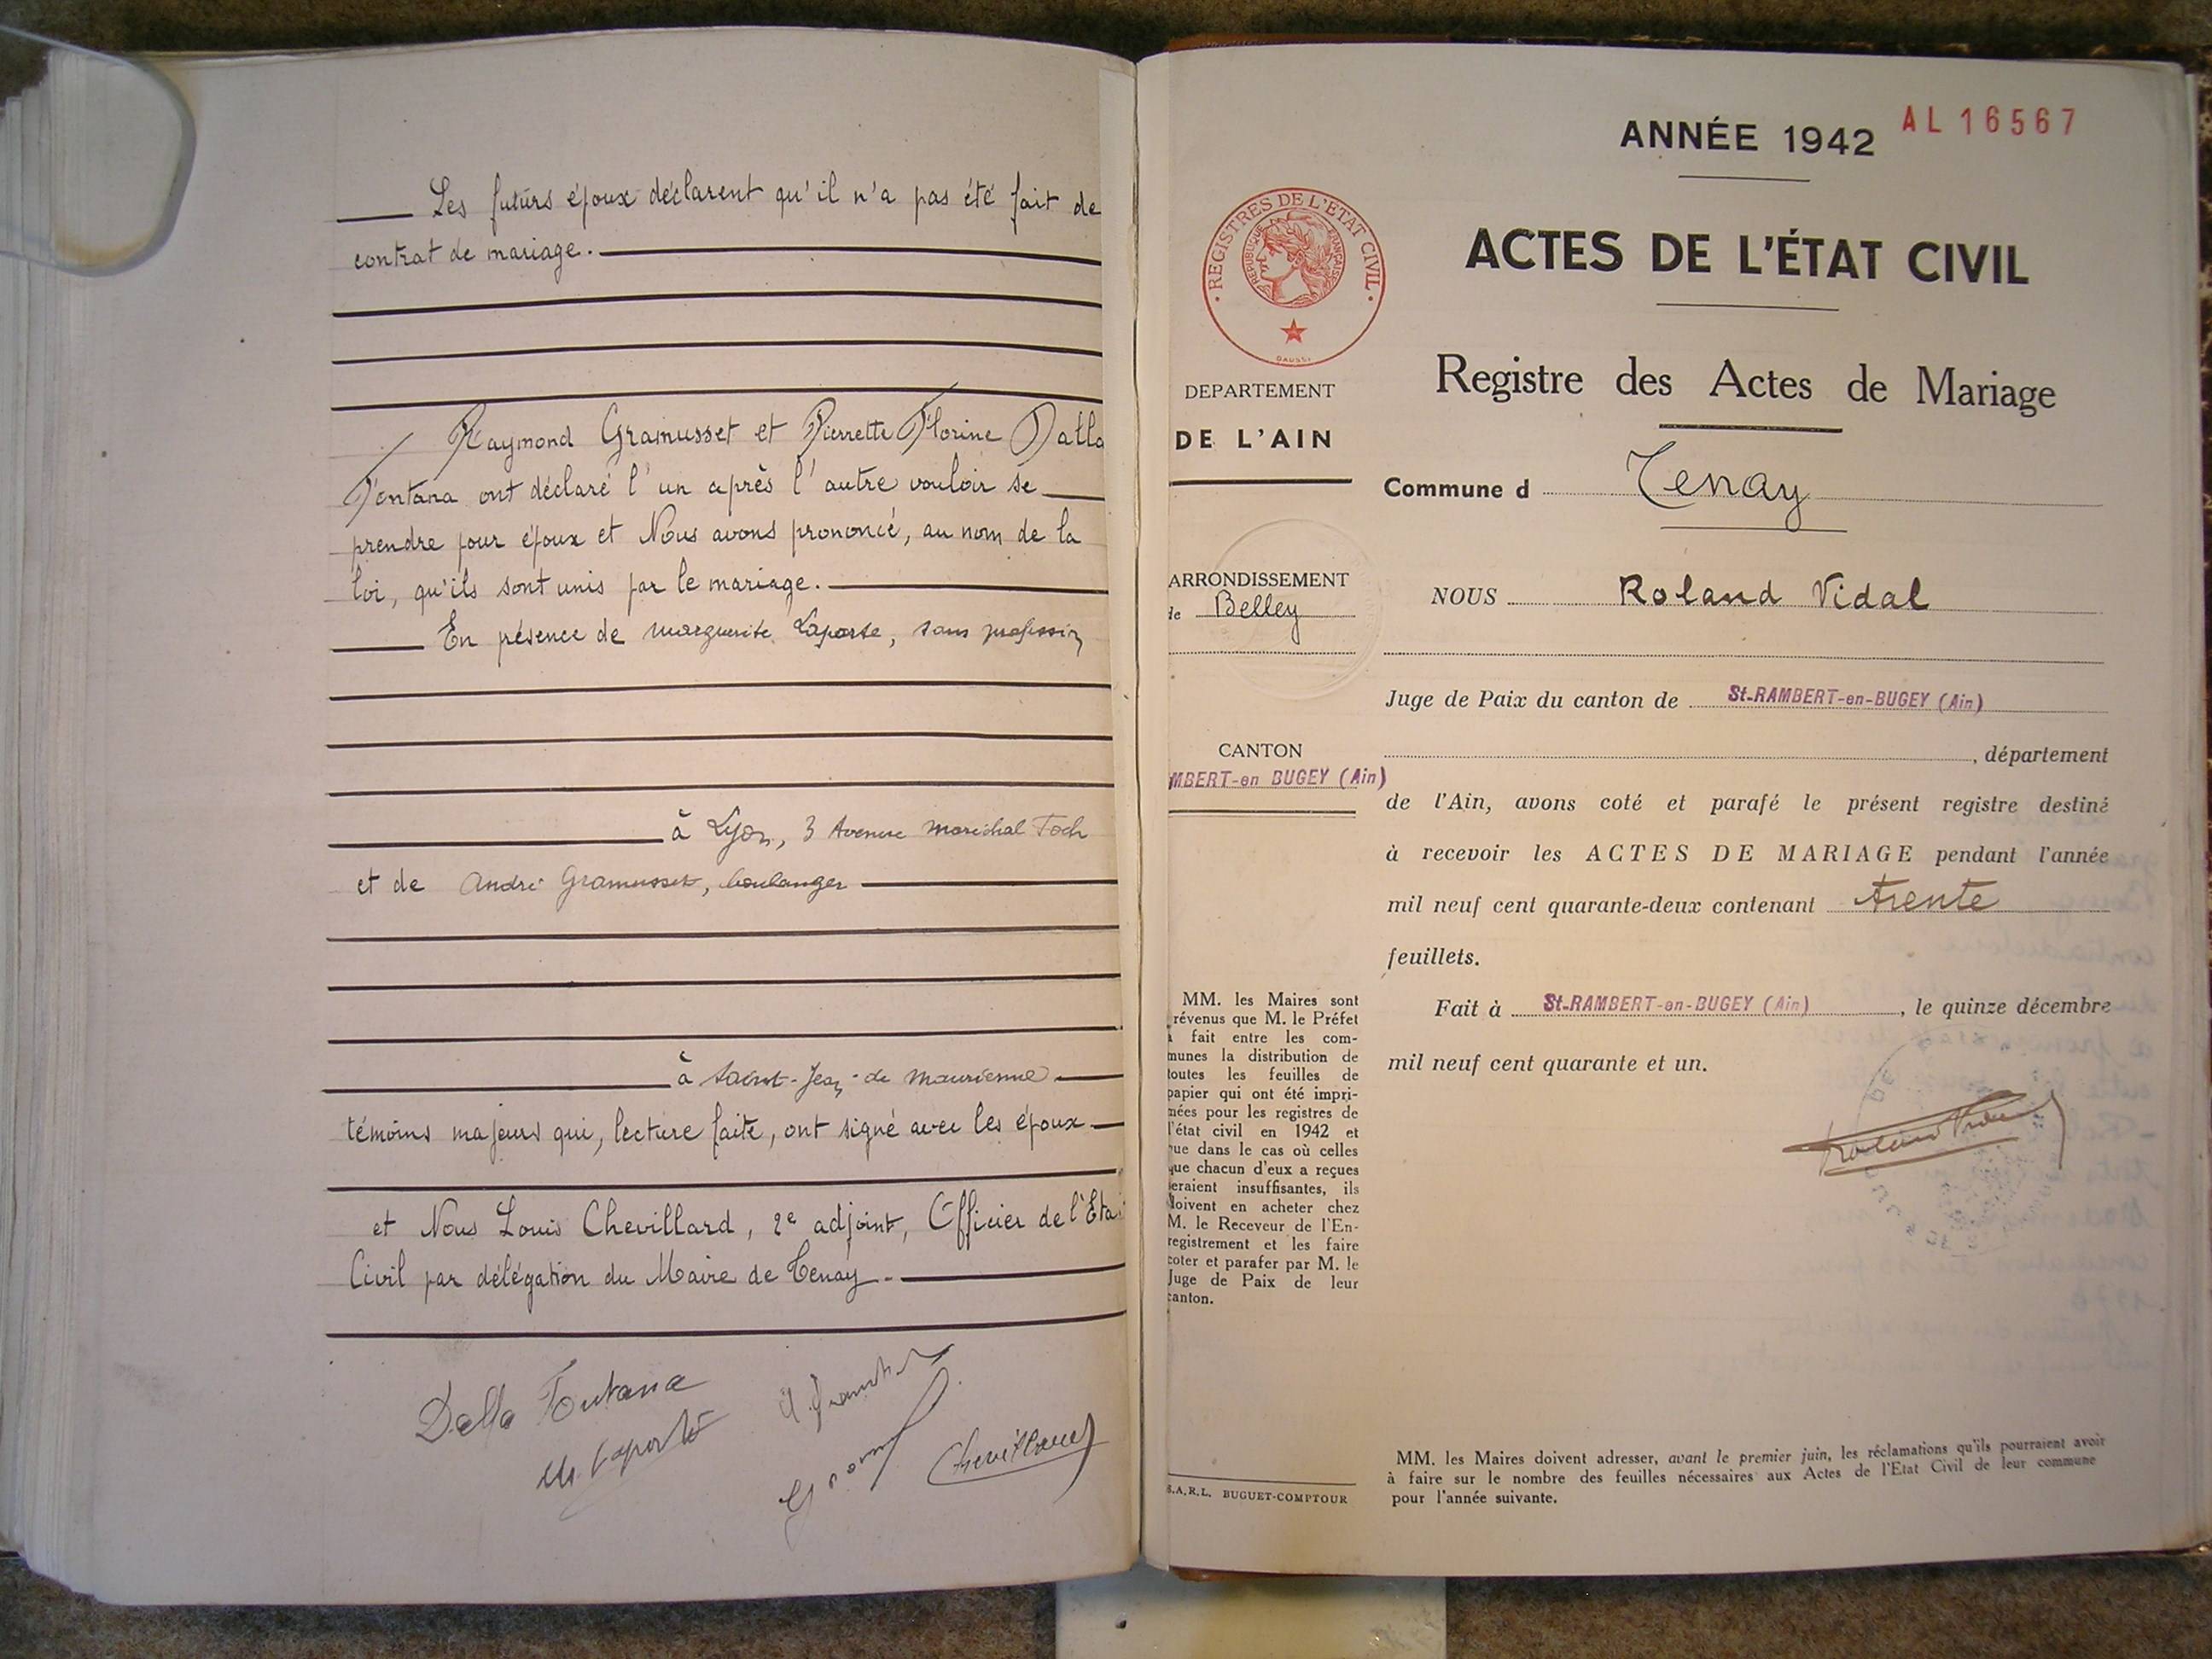 Les futurs époux déclarent qu'il n'a pas été fait de
contrat de mariage.
Raymond Gramusset et Pierrette Florine Dalla
Fontana ont déclaré l'un après l'autre vouloir se
prendre pour époux et Nous avons prononcé, au nom de la
loi, qu'ils sont unis par le mariage.
En présence de Marguerite Laporte, sans profession
à Lyon, 3 Avenue Maréchal Foch
et de André Gramusset, boulanger
à Saint-Jean-de Maurienne
témoins majeurs qui, lecture faite, ont signé avec les époux
et Nous Louis Chevillard, 2e adjoint, Officier de l'Eta
Civil par délégation du Maire de Tenay.
Dalla Fontana
M. Laporte
Chevillard
ANNÉE 1942
AL 16567
REGISTRES DE L'ETAT CIVIL
REPUBLIQUE FRANÇAISE
DAUSSI
ACTES DE L'ÉTAT CIVIL
Registre des Actes de Mariage
DEPARTEMENT
DE L'AIN
Commune d Tenay
ARRONDISSEMENT
de Belley
NOUS Roland Vidal
Juge de Paix du canton de St-RAMBERT-en-BUGEY (Ain)
CANTON
MBERT-en BUGEY (Ain)
, département
de l'Ain, avons coté et parafé le présent registre destiné
à recevoir les ACTES DE MARIAGE pendant l'année
mil neuf cent quarante-deux contenant trente
feuillets.
Fait à St-RAMBERT-en-BUGEY (Ain), le quinze décembre
mil neuf cent quarante et un.
MM. les Maires sont
révenus que M. le Préfet
a fait entre les com-
munes la distribution de
toutes les feuilles de
papier qui ont été impri-
mées pour les registres de
l'état civil en 1942 et
que dans le cas où celles
que chacun d'eux a reçues
seraient insuffisantes, ils
doivent en acheter chez
M. le Receveur de l'En-
registrement et les faire
coter et parafer par M. le
Juge de Paix de leur
canton.
S.A.R.L. BUGUET-COMPTOUR
MM. les Maires doivent adresser, avant le premier juin, les réclamations qu'ils pourraient avoir
à faire sur le nombre des feuilles nécessaires aux Actes de l'Etat Civil de leur commune
pour l'année suivante.